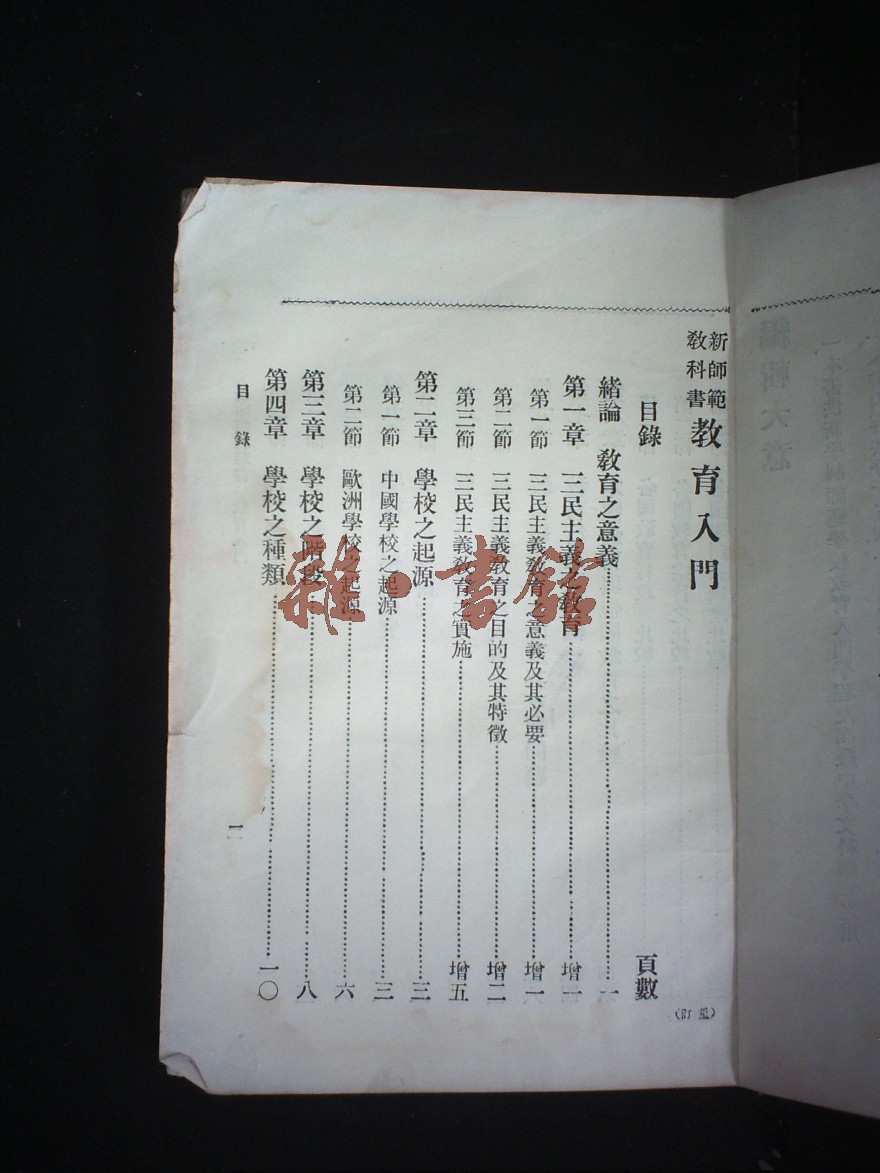 新師範
教科書
教育入門
目錄 頁數
緒論 教育之意義 一
第一章 三民主義之教育 增一
第一節 三民主義教育之意義及其必要 增一
第二節 三民主義教育之目的及其特徵 增二
第三節 三民主義教育之實施 增五
第二章 學校之起源 三
第一節 中國學校之起源 三
第二節 歐洲學校之起源 六
第三章 學校之階段 八
第四章 學校之種類 一〇
目錄
雜·書館
編輯大意